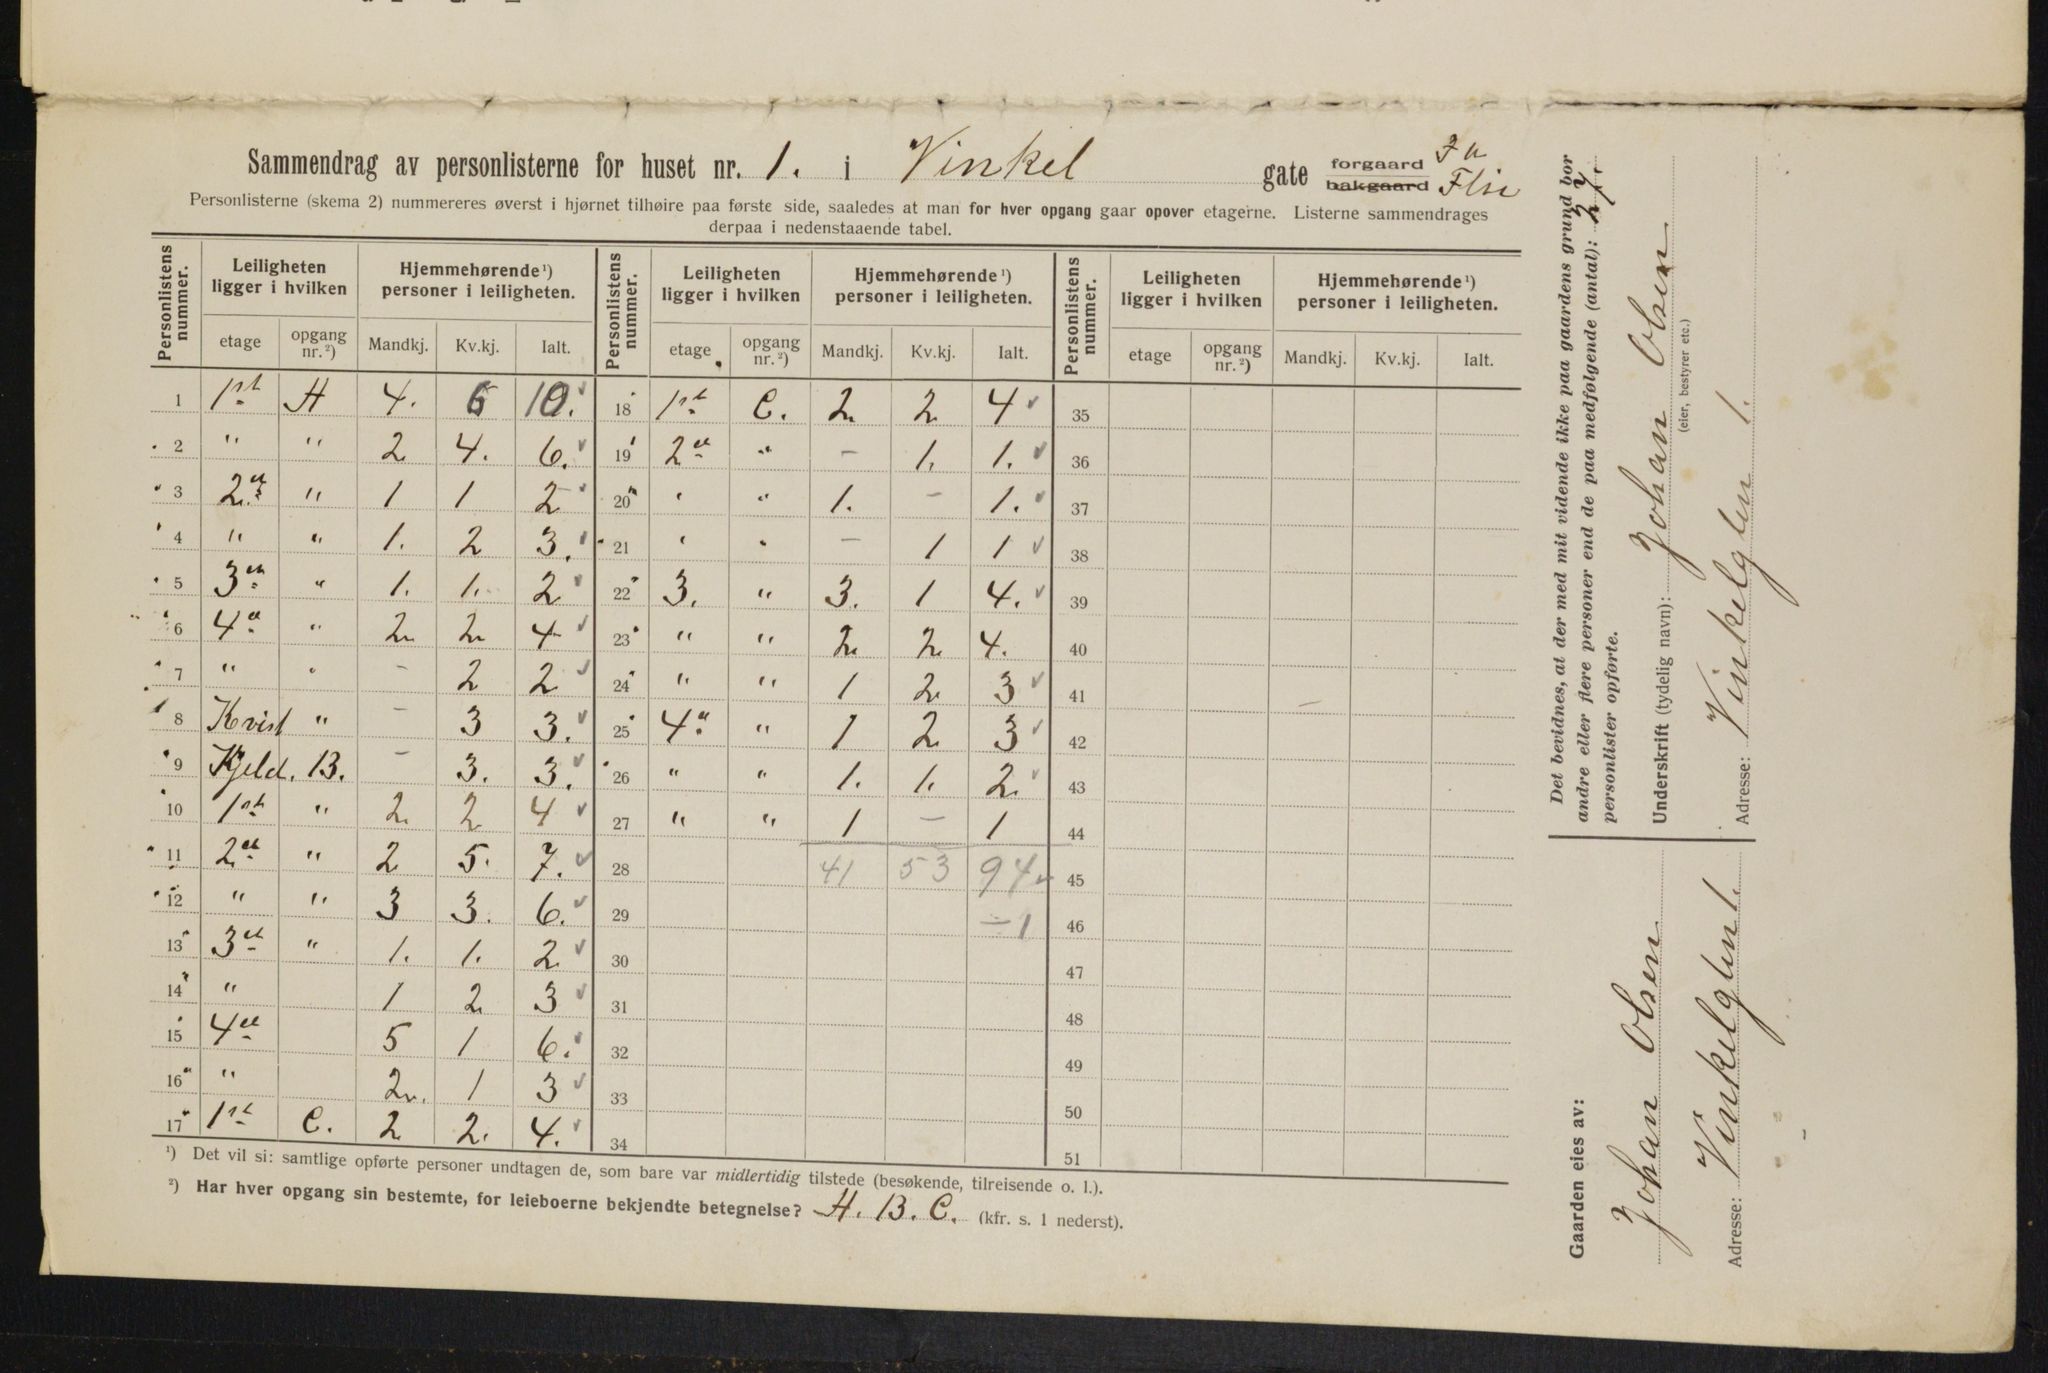 Sammendrag av personlisterne for huset nr. 1. i Vinkel gate forgaard bakgaard
Personlisterne (skema 2) nummereres øverst i hjørnet tilhøire paa første side, saaledes at man for hver opgang gaar opover etagerne. Listerne sammendrages
derpaa i nedenstaaende tabel.
Personlistens nummer. Leiligheten ligger i hvilken Hjemmehørende ¹) personer i leiligheten. Personlistens nummer. Leiligheten ligger i hvilken Hjemmehørende ¹) personer i leiligheten. Personlistens nummer. Leiligheten ligger i hvilken Hjemmehørende ¹) personer i leiligheten.
etage opgang nr. ²) Mandkj. Kv.kj. Ialt. etage opgang nr. ²) Mandkj. Kv.kj. Ialt. etage opgang nr. ²) Mandkj. Kv.kj. Ialt.
1 1st H 4. 6 10. 18 1st C. 2 2 4 35
2 " " 2 4. 6. 19 2et " – 1. 1. 36
3 2et " 1 1 2 20 " " 1. – 1. 37
4 " " 1. 2 3. 21 " " – 1 1 38
5 3et " 1. 1. 2 22 3. " 3. 1 4. 39
6 4et " 2 2 4 23 " " 2 2 4. 40
7 " " – 2 2 24 " " 1 2 3 41
8 Kvist " – 3 3. 25 4et " 1 2 3 42
9 Kjeld. B. – 3. 3. 26 " " 1. 1. 2. 43
10 1st " 2 2 4 27 " " 1 – 1 44
11 2et " 2 5. 7. 28 41 53 94 45
12 " " 3 3. 6. 29 – 1 46
13 3et " 1. 1. 2 30 47
14 " 1 2 3 31 48
15 4et 5 1 6. 32 49
16 " 2. 1 3 33 50
17 1st C. 2 2. 4. 34 51
¹) Det vil si: samtlige opførte personer undtagen de, som bare var midlertidig tilstede (besøkende, tilreisende o. l.).
²) Har hver opgang sin bestemte, for leieboerne bekjendte betegnelse? H. B. C. (kfr. s. 1 nederst).
Det bevidnes, at der med mit vidende ikke paa gaardens grund bor
andre eller flere personer end de paa medfølgende (antal): 27.
personlister opførte.
Underskrift (tydelig navn): Johan Olsen
(eier, bestyrer etc.)
Adresse: Vinkelgten 1.
Gaarden eies av:
Johan Olsen
Adresse: Vinkelgten 1.